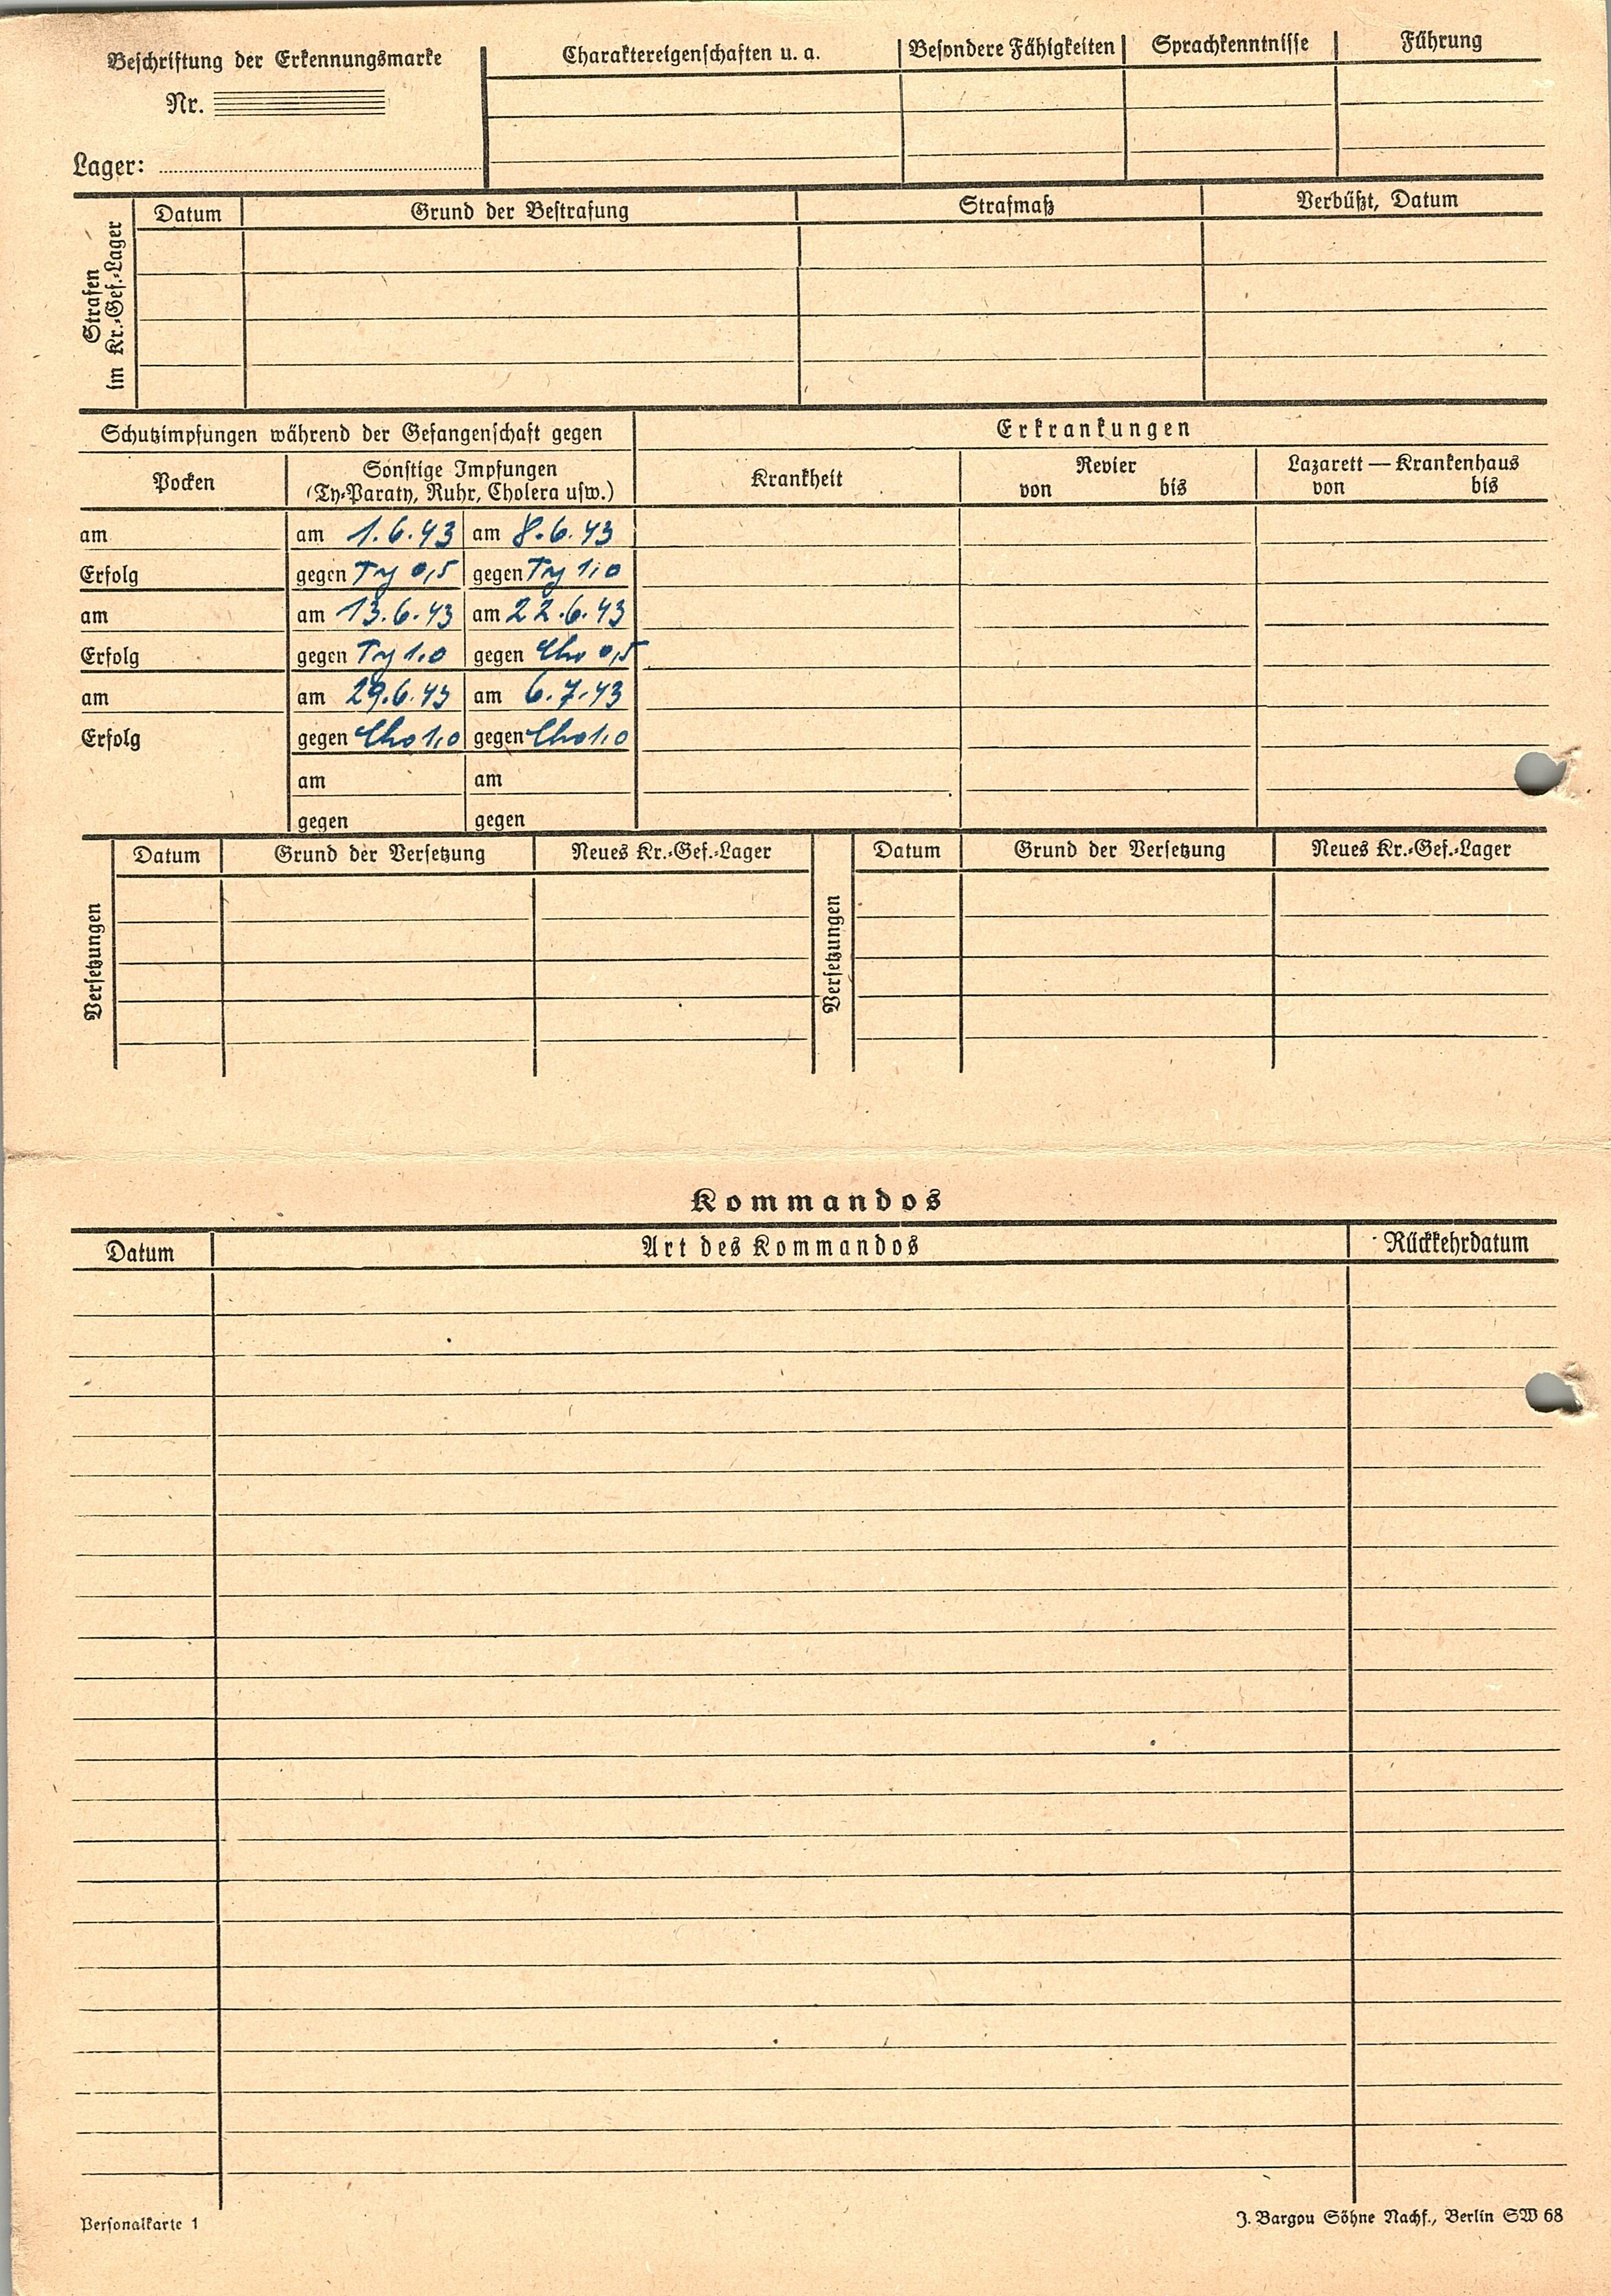 Beschriftung der Erkennungsmarke
Nr.
Lager:
Charaktereigenschaften u. a.
Besondere Fähigkeiten
Sprachkenntnisse
Führung
Strafen im Kr.-Gef.-Lager
Datum
Grund der Bestrafung
Strafmaß
Verbüßt, Datum
Schutzimpfungen während der Gefangenschaft gegen
Erkrankungen
Pocken
Sonstige Impfungen
(Ty-Paraty, Ruhr, Cholera usw.)
Krankheit
Revier
von bis
Lazarett — Krankenhaus
von bis
am am 1.6.43 am 8.6.43
Erfolg gegen Ty 0,5 gegen Ty 1,0
am am 13.6.43 am 22.6.43
Erfolg gegen Ty 1,0 gegen Cho 0,5
am am 29.6.43 am 6.7.43
Erfolg gegen Cho 1,0 gegen Cho 1,0
am am
gegen gegen
Versetzungen
Datum Grund der Versetzung Neues Kr.-Gef.-Lager
Versetzungen
Datum Grund der Versetzung Neues Kr.-Gef.-Lager
Kommandos
Datum Art des Kommandos Rückkehrdatum
Personalkarte 1
J. Bargou Söhne Nachf., Berlin SW 68